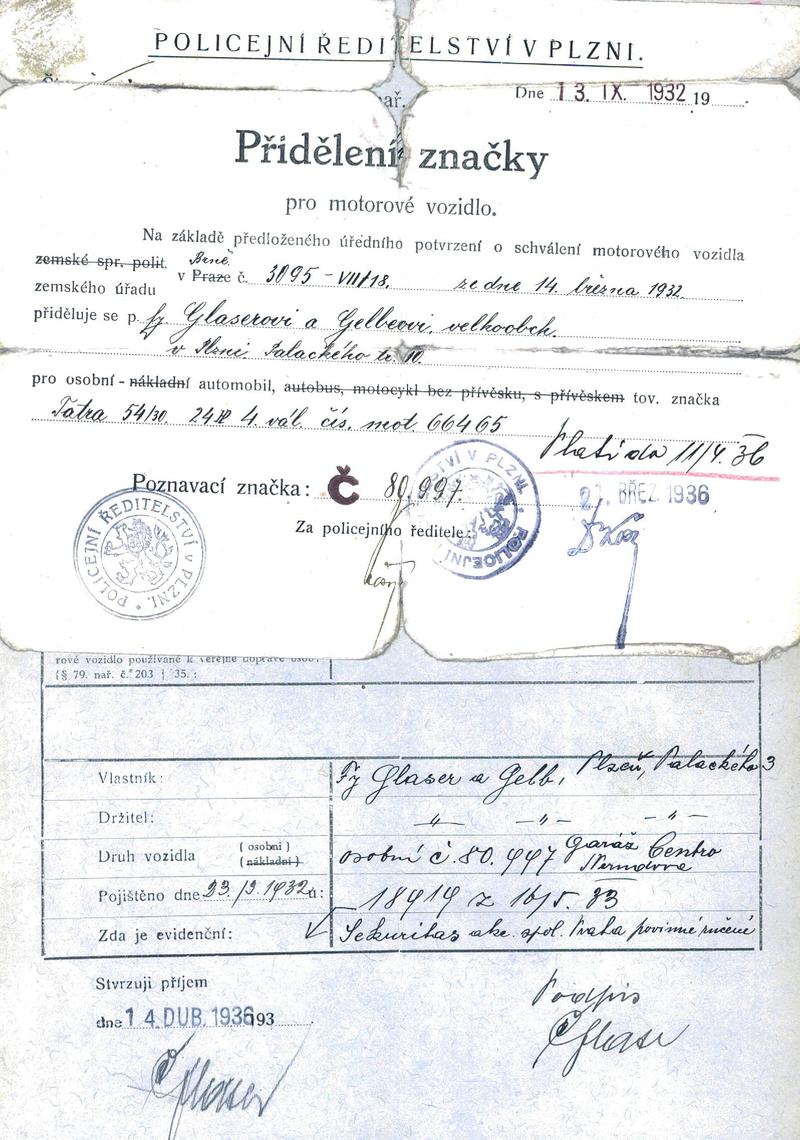 POLICEJNÍ ŘEDITELSTVÍ V PLZNI.
Dne 13. IX. 1932 19
Přidělení značky
pro motorové vozidlo.
Na základě předloženého úředního potvrzení o schválení motorového vozidla
zemské spr. polit. Brně
zemského úřadu v Praze č. 3095 - VII/18 ze dne 14. března 1932
přiděluje se p. fy Glaserovi a Gelbovi, velkoobch.
v Plzni. Palackého tř. 10.
pro osobní - nákladní automobil, autobus, motocykl bez přívěsku, s přívěskem tov. značka
Tatra 54/30 24 4. vál. čís. mot. 66465
Platí do 11/4. 36
Poznavací značka: Č 80.997.
21. BŘEZ. 1936
Za policejního ředitele:
POLICEJNÍ ŘEDITELSTVÍ V PLZNI.
POLICEJNÍ V PLZNI
rové vozidlo používané k veřejné dopravě osob,
(§ 79. nař. č. 203 | 35.:
Vlastník: Fy Glaser a Gelb, Plzeň, Palackého 3
Držitel: -„- -„- -„-
Druh vozidla (osobní) (nákladní) osobní č. 80.997 garáž Centro
Nerudova
Pojištěno dne 23./9. 1932 u: 18919 z 16/5. 33
Zda je evidenční: Sekuritas akc. spol. Praha povinné ručení
Stvrzuji příjem
dne 14. DUB. 1936 193
Podpis
Glaser
Glaser